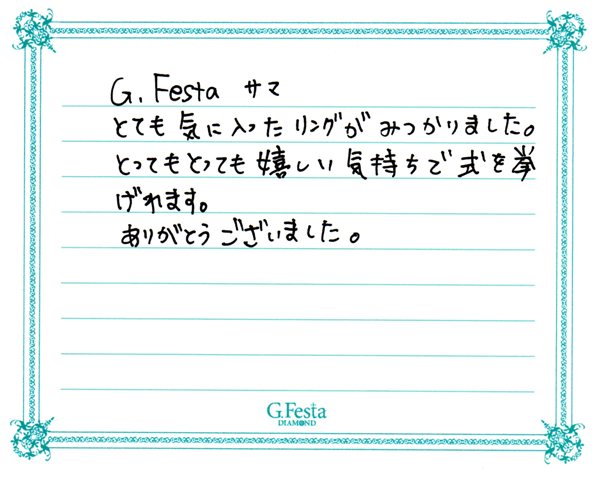 G. Festa サマ
とても気に入ったリングがみつかりました。
とってもとっても嬉しい気持ちで式を挙
げれます。
ありがとうございました。
G.Festa
DIAMOND